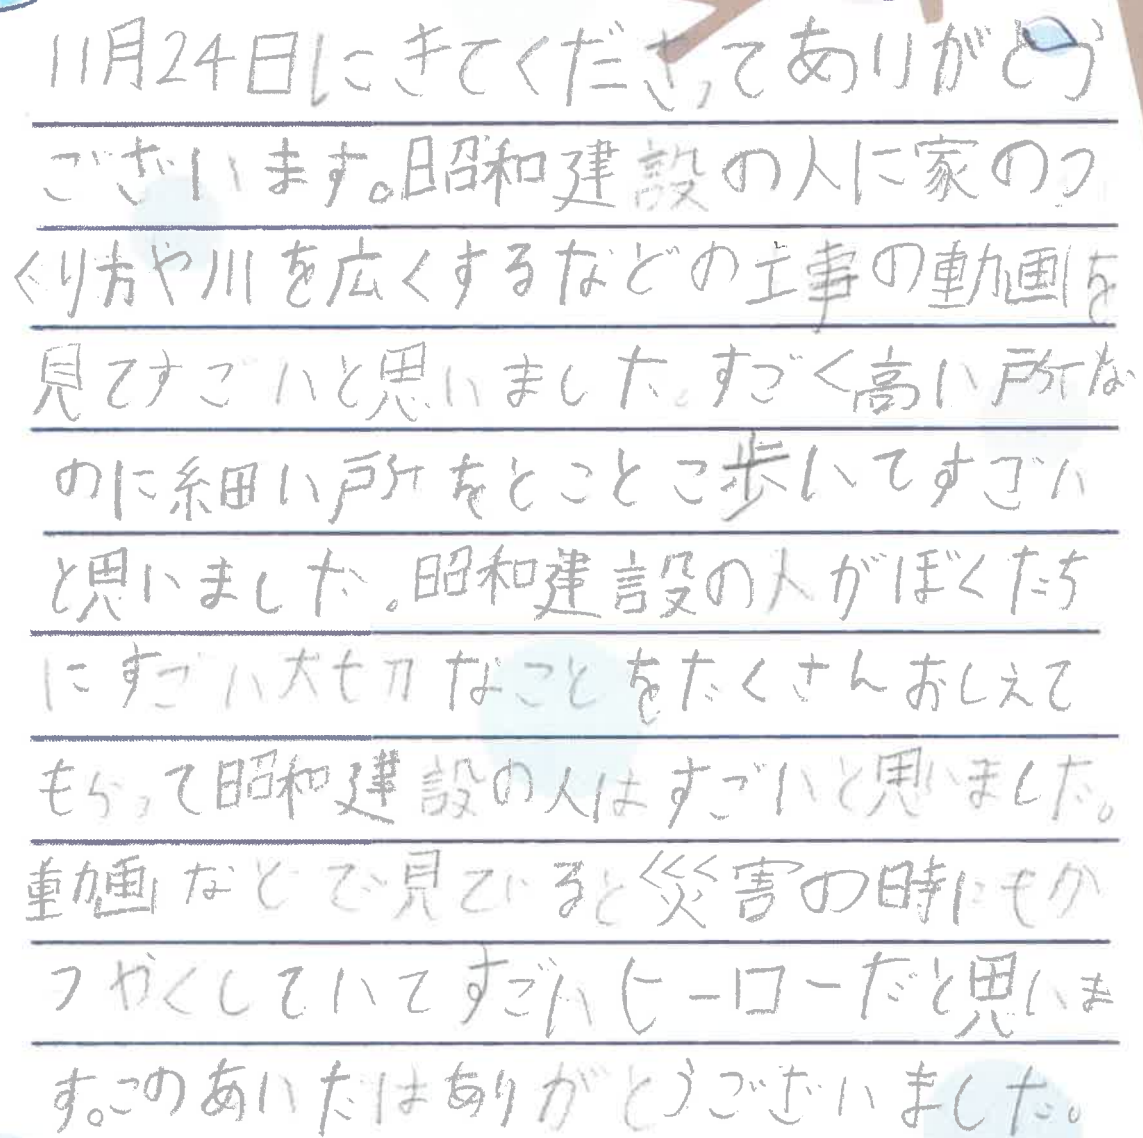 11月24日にきてくださってありがとう
ございます。昭和建設の人に家のつ
くり方や川を広くするなどの工事の動画を
見てすごいと思いました。すごく高い所な
のに細い所をとことこ歩いてすごい
と思いました。昭和建設の人がぼくたち
にすごい大切なことをたくさんおしえて
もらって昭和建設の人はすごいと思いました。
動画などで見ていると災害の時にもか
つやくしていてすごいヒーローだと思いま
す。このあいだはありがとうございました。